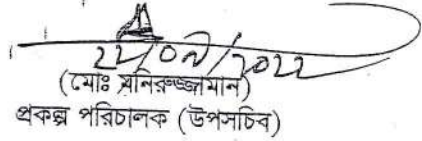 ২২/০৯/২০২২
(মোঃ মনিরুজ্জামান)
প্রকল্প পরিচালক (উপসচিব)